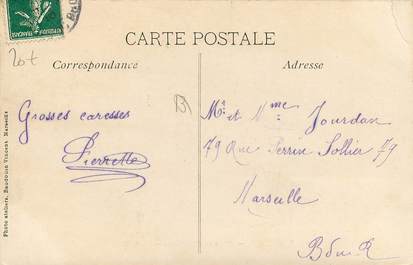 CARTE POSTALE
Correspondance
Adresse
20f
B
Grosses caresses
Pierrette
Mr et Mme Jourdan
79 Rue Perrin Sollier 79
Marseille
B du R
Photo ateliers, Baudouin Vincent Marseille